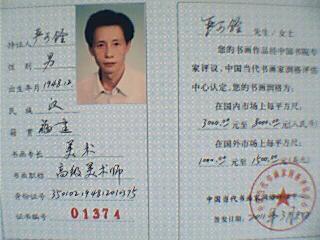 持证人 严可銓
性别 男
出生年月 1948.12
民族 汉
籍贯 福建
书画专长 美术
书画职称 高级美术师
身份证号 350102194812010375
证书编号 01374
严可銓 先生/女士
您的书画作品经中国书院专
家评议，中国当代书画家润格评估
中心认定，您的书画润格:
在国内市场上每平方尺:
3000.00 元至 8000.00 元(人民币)
在国外市场上每平方尺:
1000.00 元至 1500.00 元
中国当代书画家润格
签发日期: 2001年3月